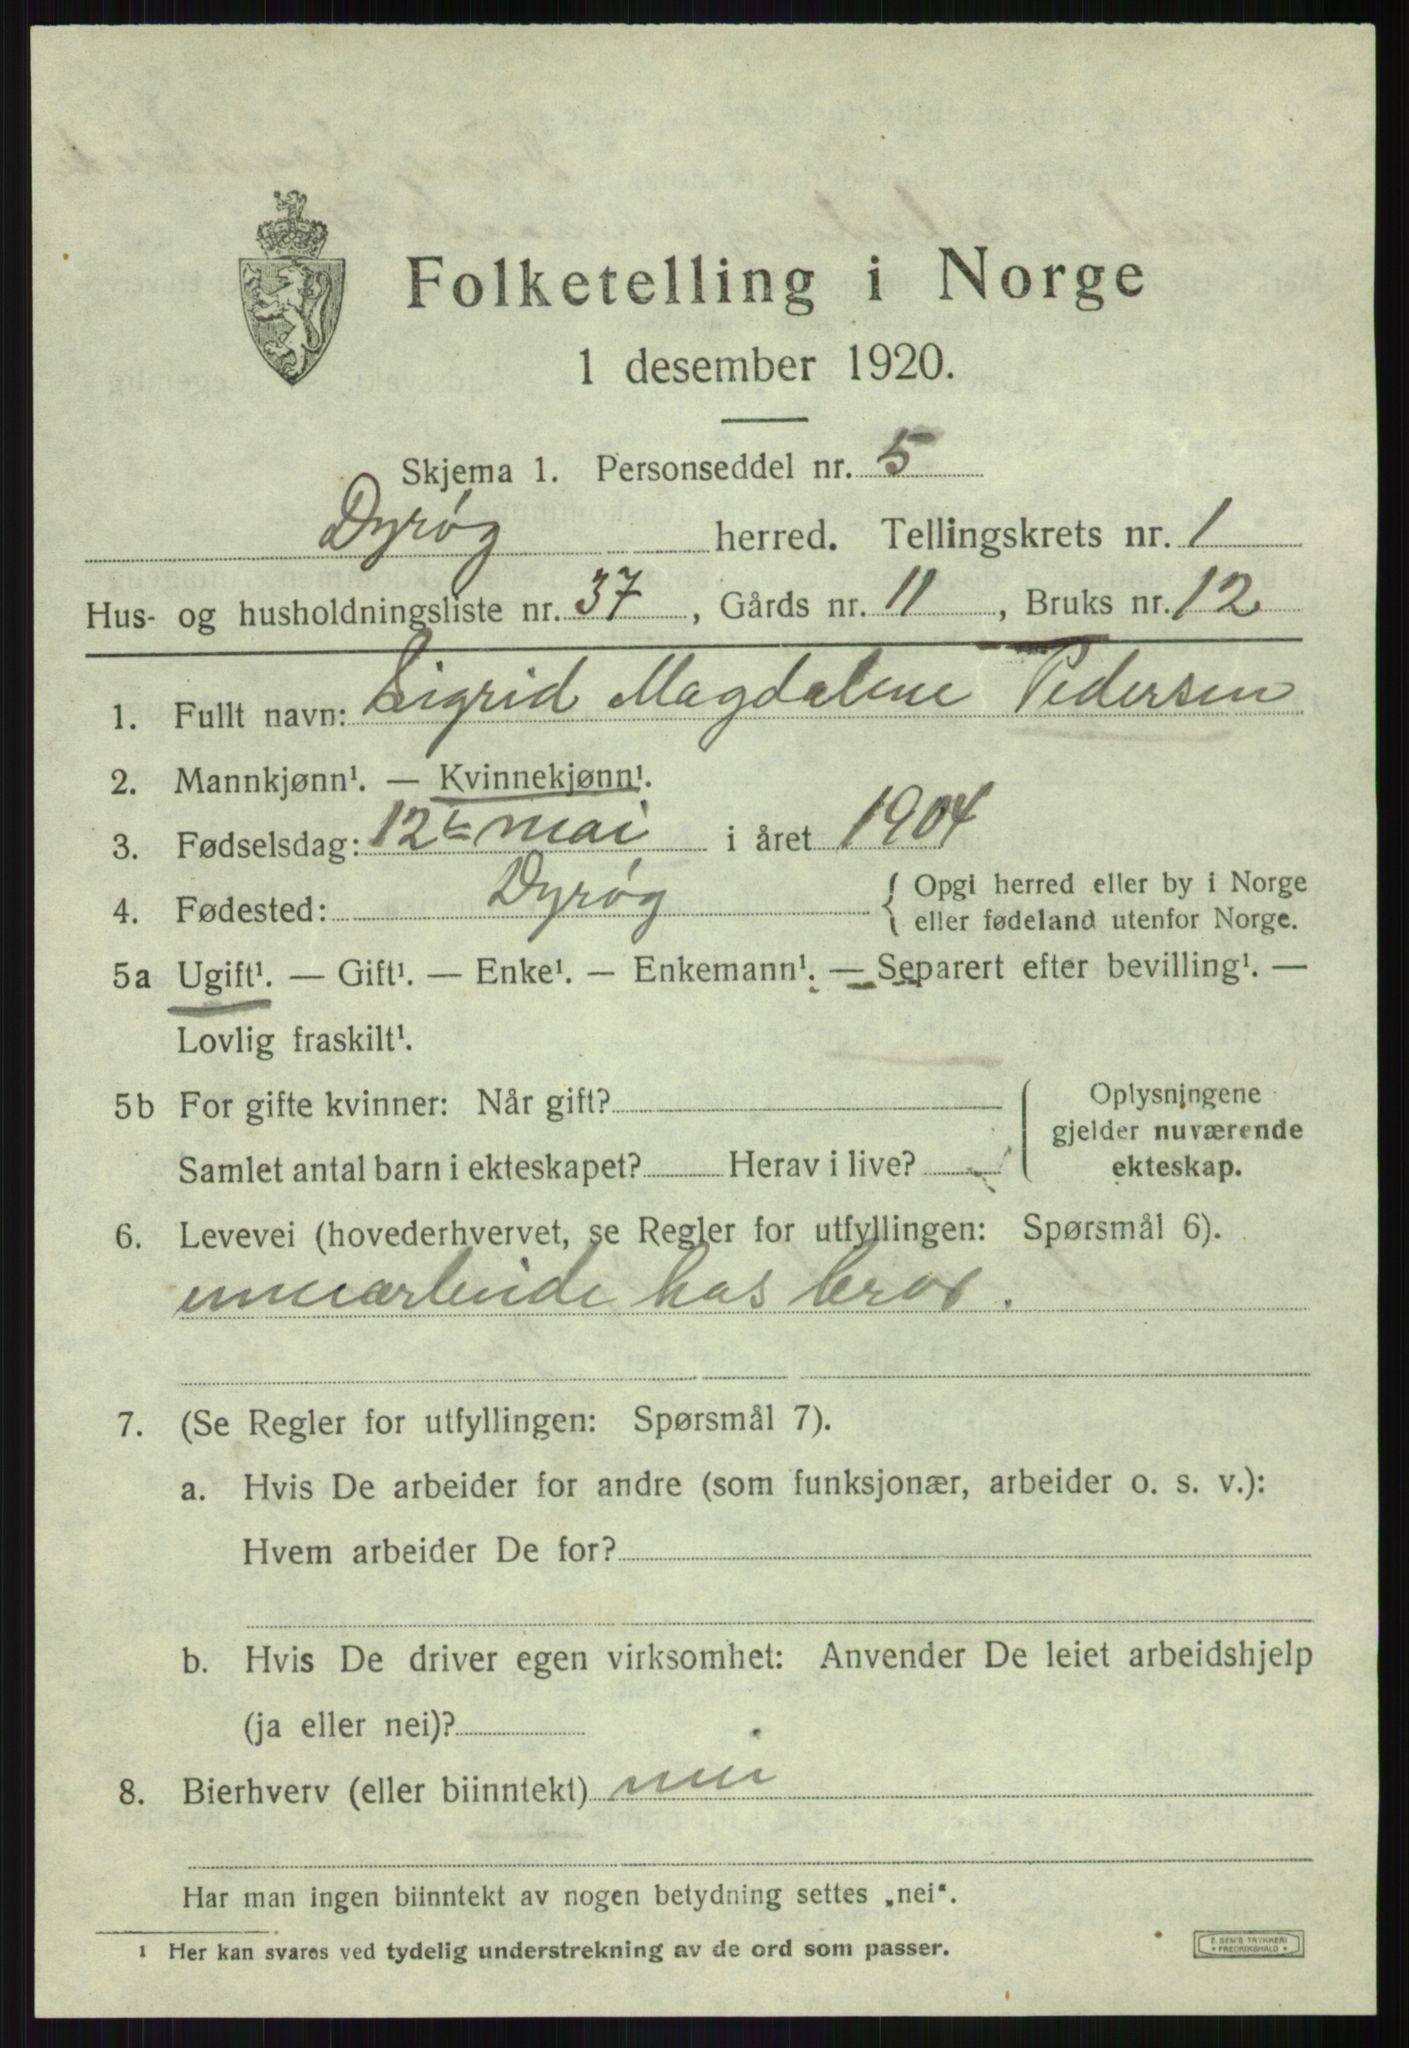 Folketelling i Norge
1 desember 1920.
Skjema 1. Personseddel nr. 5
Dyrøy herred. Tellingskrets nr. 1
Hus- og husholdningsliste nr. 37, Gårds nr. 11, Bruks nr. 12
1. Fullt navn: Sigrid Magdalene Pedersen
2. Mannkjønn¹. — Kvinnekjønn¹.
3. Fødselsdag: 12te mai i året 1904
4. Fødested: Dyrøy { Opgi herred eller by i Norge
eller fødeland utenfor Norge.
5a Ugift¹. — Gift¹. — Enke¹. — Enkemann¹. — Separert efter bevilling¹. —
Lovlig fraskilt¹.
5b For gifte kvinner: Når gift?
Samlet antal barn i ekteskapet? Herav i live?
Oplysningene
gjelder nuværende
ekteskap.
6. Levevei (hovederhvervet, se Regler for utfyllingen: Spørsmål 6).
innearbeide hos bror.
7. (Se Regler for utfyllingen: Spørsmål 7).
a. Hvis De arbeider for andre (som funksjonær, arbeider o. s. v.):
Hvem arbeider De for?
b. Hvis De driver egen virksomhet: Anvender De leiet arbeidshjelp
(ja eller nei)?
8. Bierhverv (eller biinntekt) nei
Har man ingen biinntekt av nogen betydning settes „nei“.
¹ Her kan svares ved tydelig understrekning av de ord som passer.
E. SEM'S TRYKKERI
* FREDRIKSHALD *